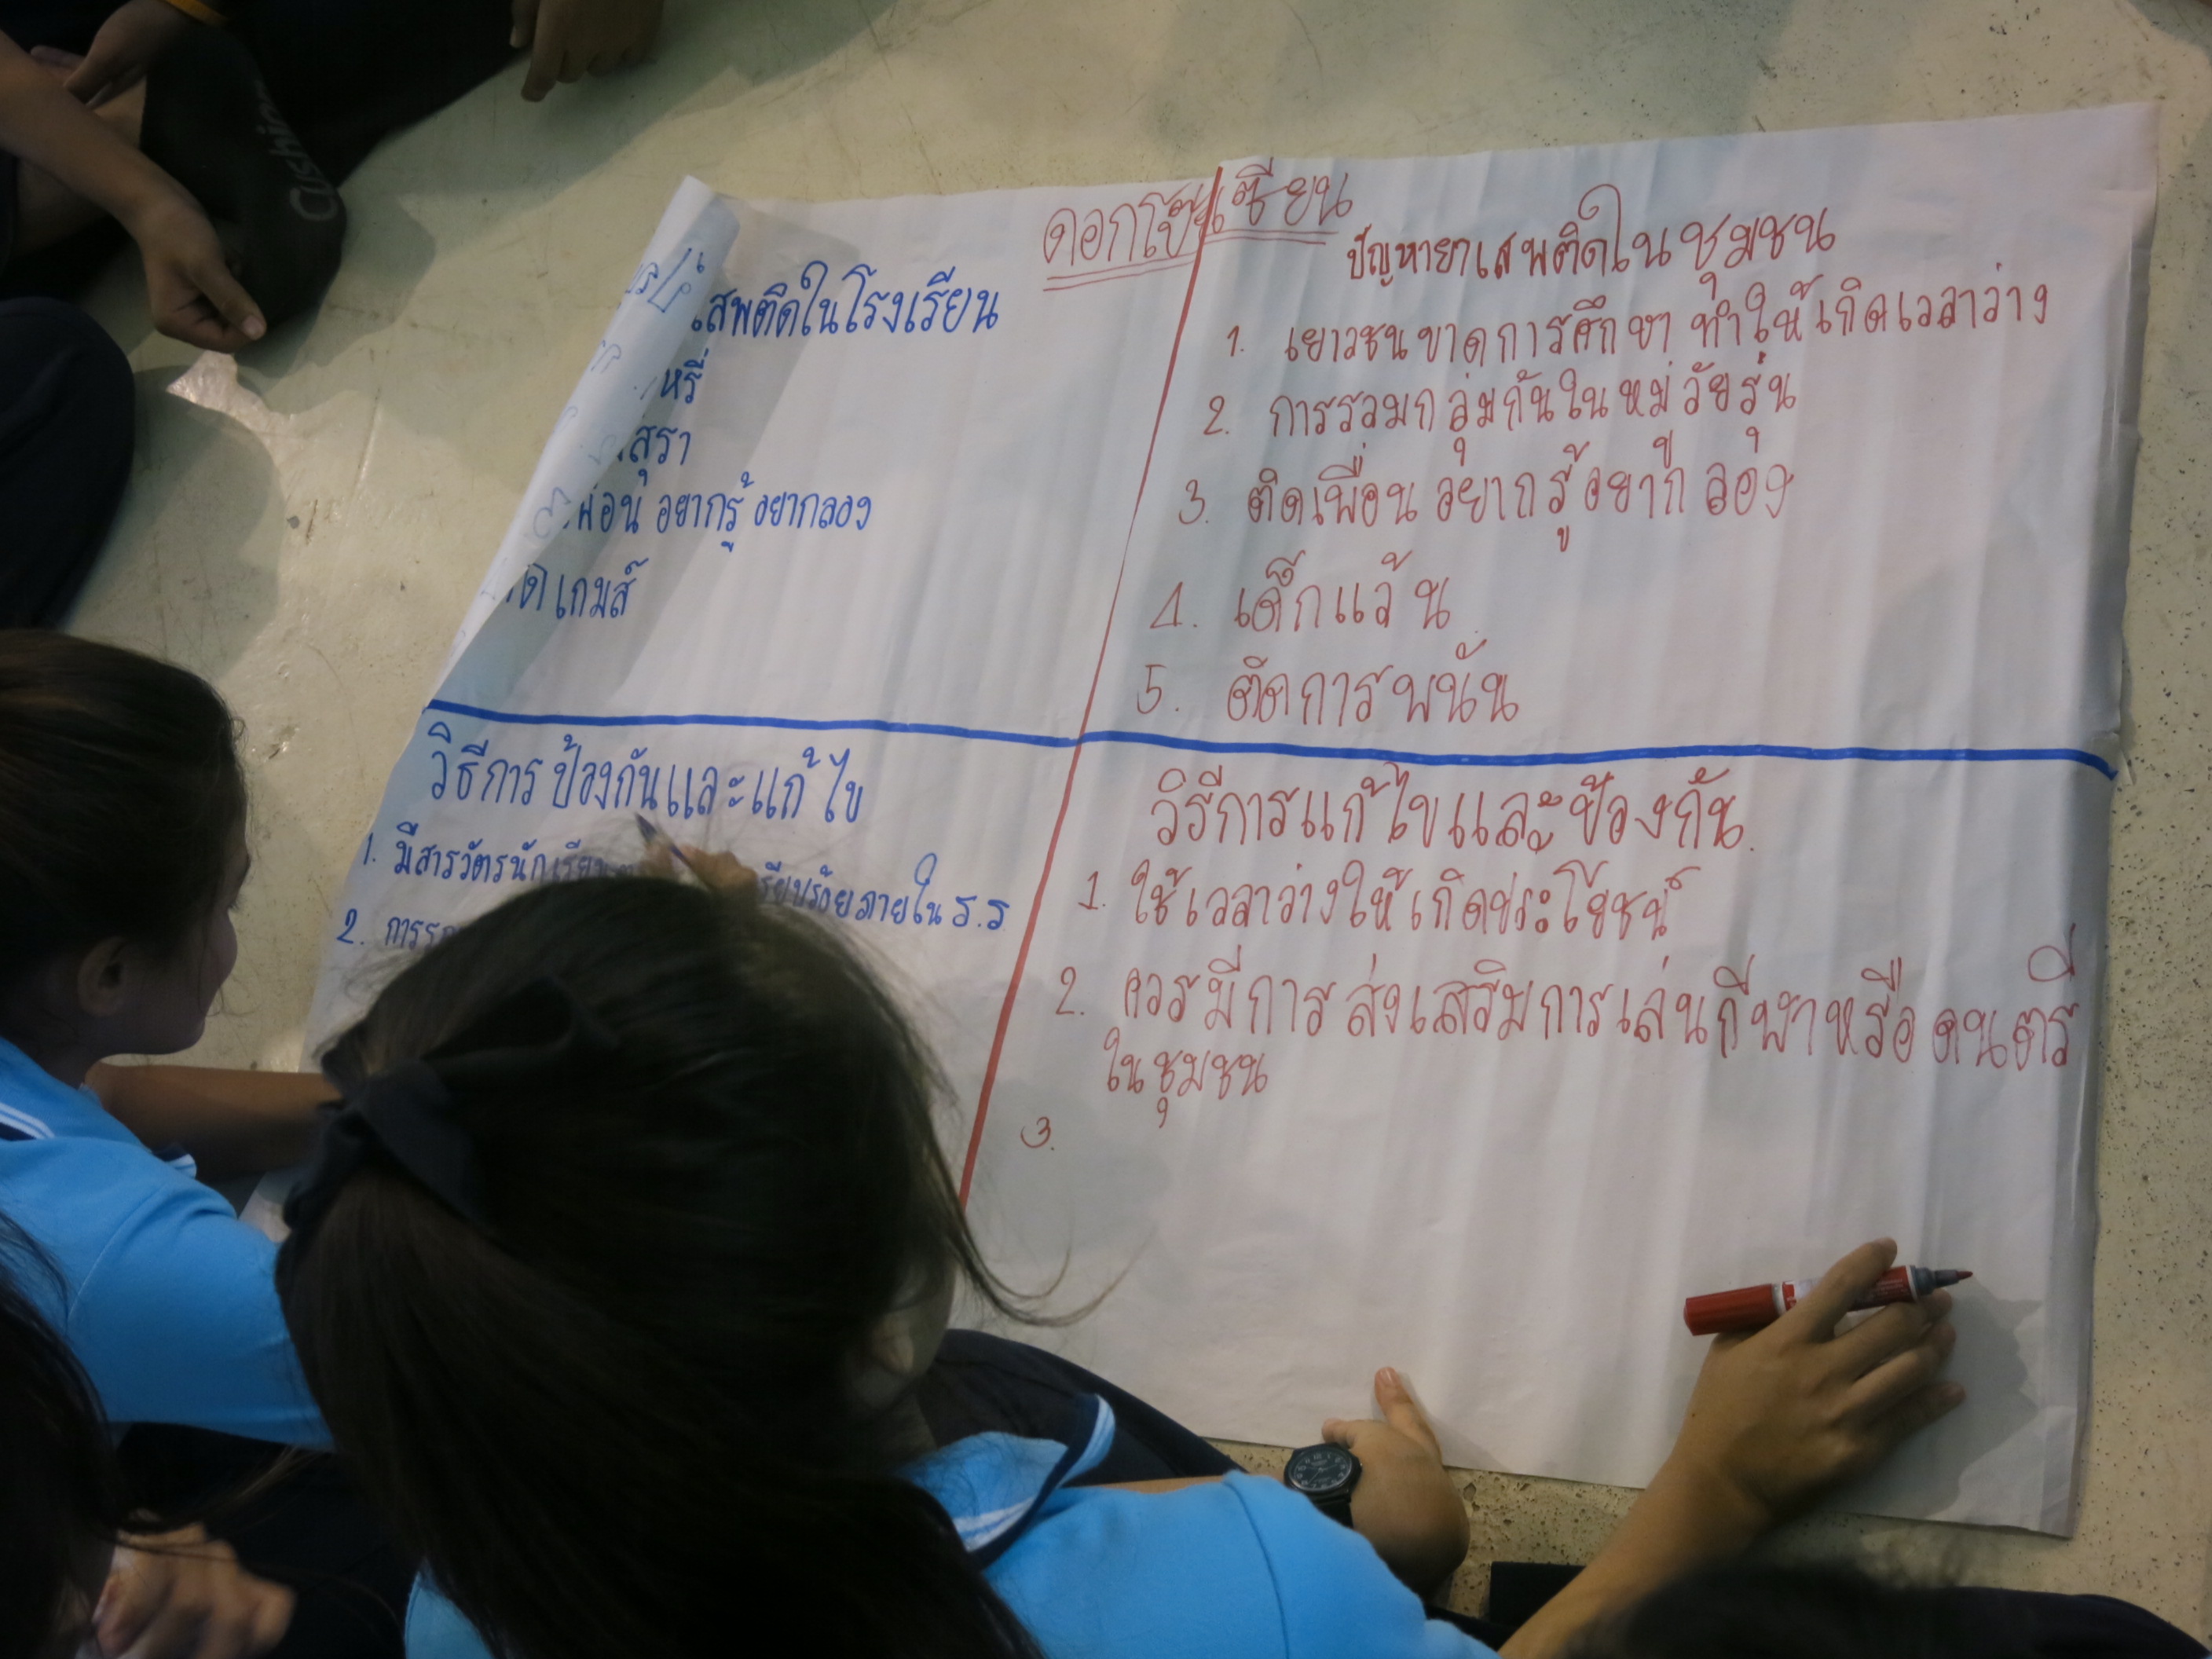 ดอกโป๊ยเซียน
เสพติดในโรงเรียน
หรี่
สุรา
เพื่อน อยากรู้ อยากลอง
เกมส์
ปัญหายาเสพติดในชุมชน
1. เยาวชนขาดการศึกษา ทำให้เกิดเวลาว่าง
2. การรวมกลุ่มกันในหมู่วัยรุ่น
3. ติดเพื่อน อยากรู้อยากลอง
4. เด็กแว้น
5. ติดการพนัน
วิธีการป้องกันและแก้ไข
1. มีสารวัตรนักเรียน เรียบร้อยภายใน ร.ร
2.
วิธีการแก้ไขและป้องกัน
1. ใช้เวลาว่างให้เกิดประโยชน์
2. ควรมีการส่งเสริมการเล่นกีฬาหรือดนตรี
ในชุมชน
3.
Cushion